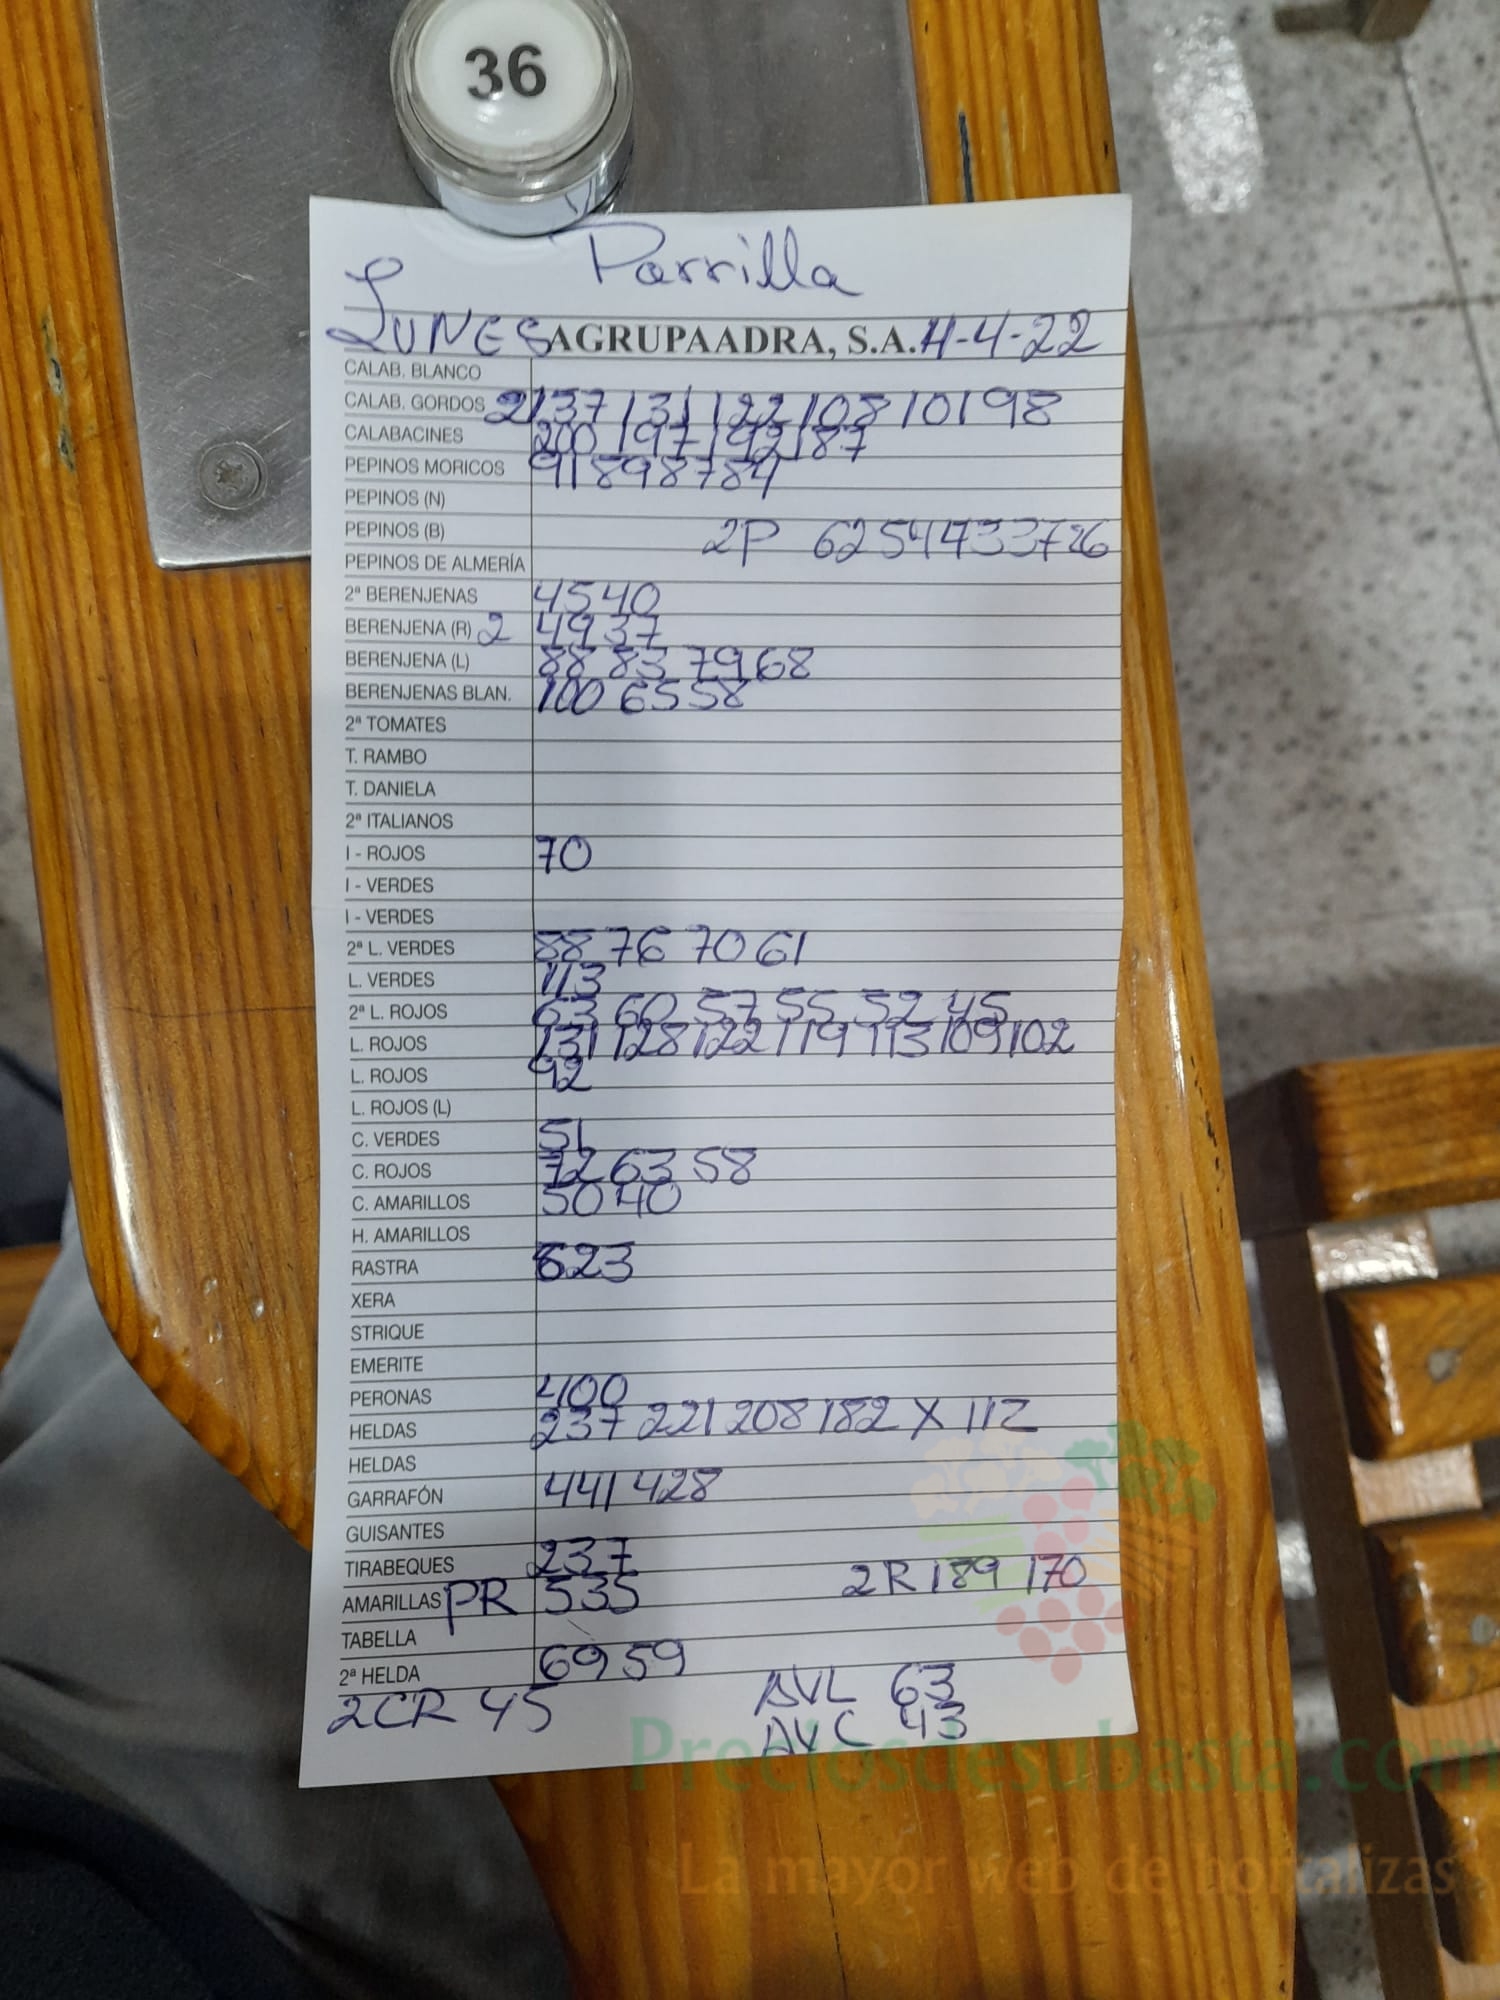 36
Parrilla
LUNES AGRUPAADRA, S.A. 11-4-22
CALAB. BLANCO
CALAB. GORDOS 2 137 131 122 108 101 98
CALABACINES 200 197 192 187
PEPINOS MORICOS 91 89 87 84
PEPINOS (N)
PEPINOS (B) 2P 62 54 47 33 7 26
PEPINOS DE ALMERÍA
2ª BERENJENAS 45 40
BERENJENA (R) 2 49 37
BERENJENA (L) 88 83 79 68
BERENJENAS BLAN. 100 65 58
2ª TOMATES
T. RAMBO
T. DANIELA
2ª ITALIANOS
I - ROJOS 70
I - VERDES
I - VERDES
2ª L. VERDES 88 76 70 61
L. VERDES 113
2ª L. ROJOS 63 60 57 55 52 45
L. ROJOS 131 128 122 119 113 109 102
L. ROJOS 92
L. ROJOS (L)
C. VERDES 51
C. ROJOS 72 63 58
C. AMARILLOS 50 40
H. AMARILLOS
RASTRA 623
XERA
STRIQUE
EMERITE
PERONAS 400
HELDAS 237 221 208 182 X 112
HELDAS
GARRAFÓN 441 428
GUISANTES
TIRABEQUES 237 2R 189 170
AMARILLAS PR 535
TABELLA
2ª HELDA 69 59
2CR 45 AVL 63
AVC 43
Preciosdesubasta.com
La mayor web de hortalizas